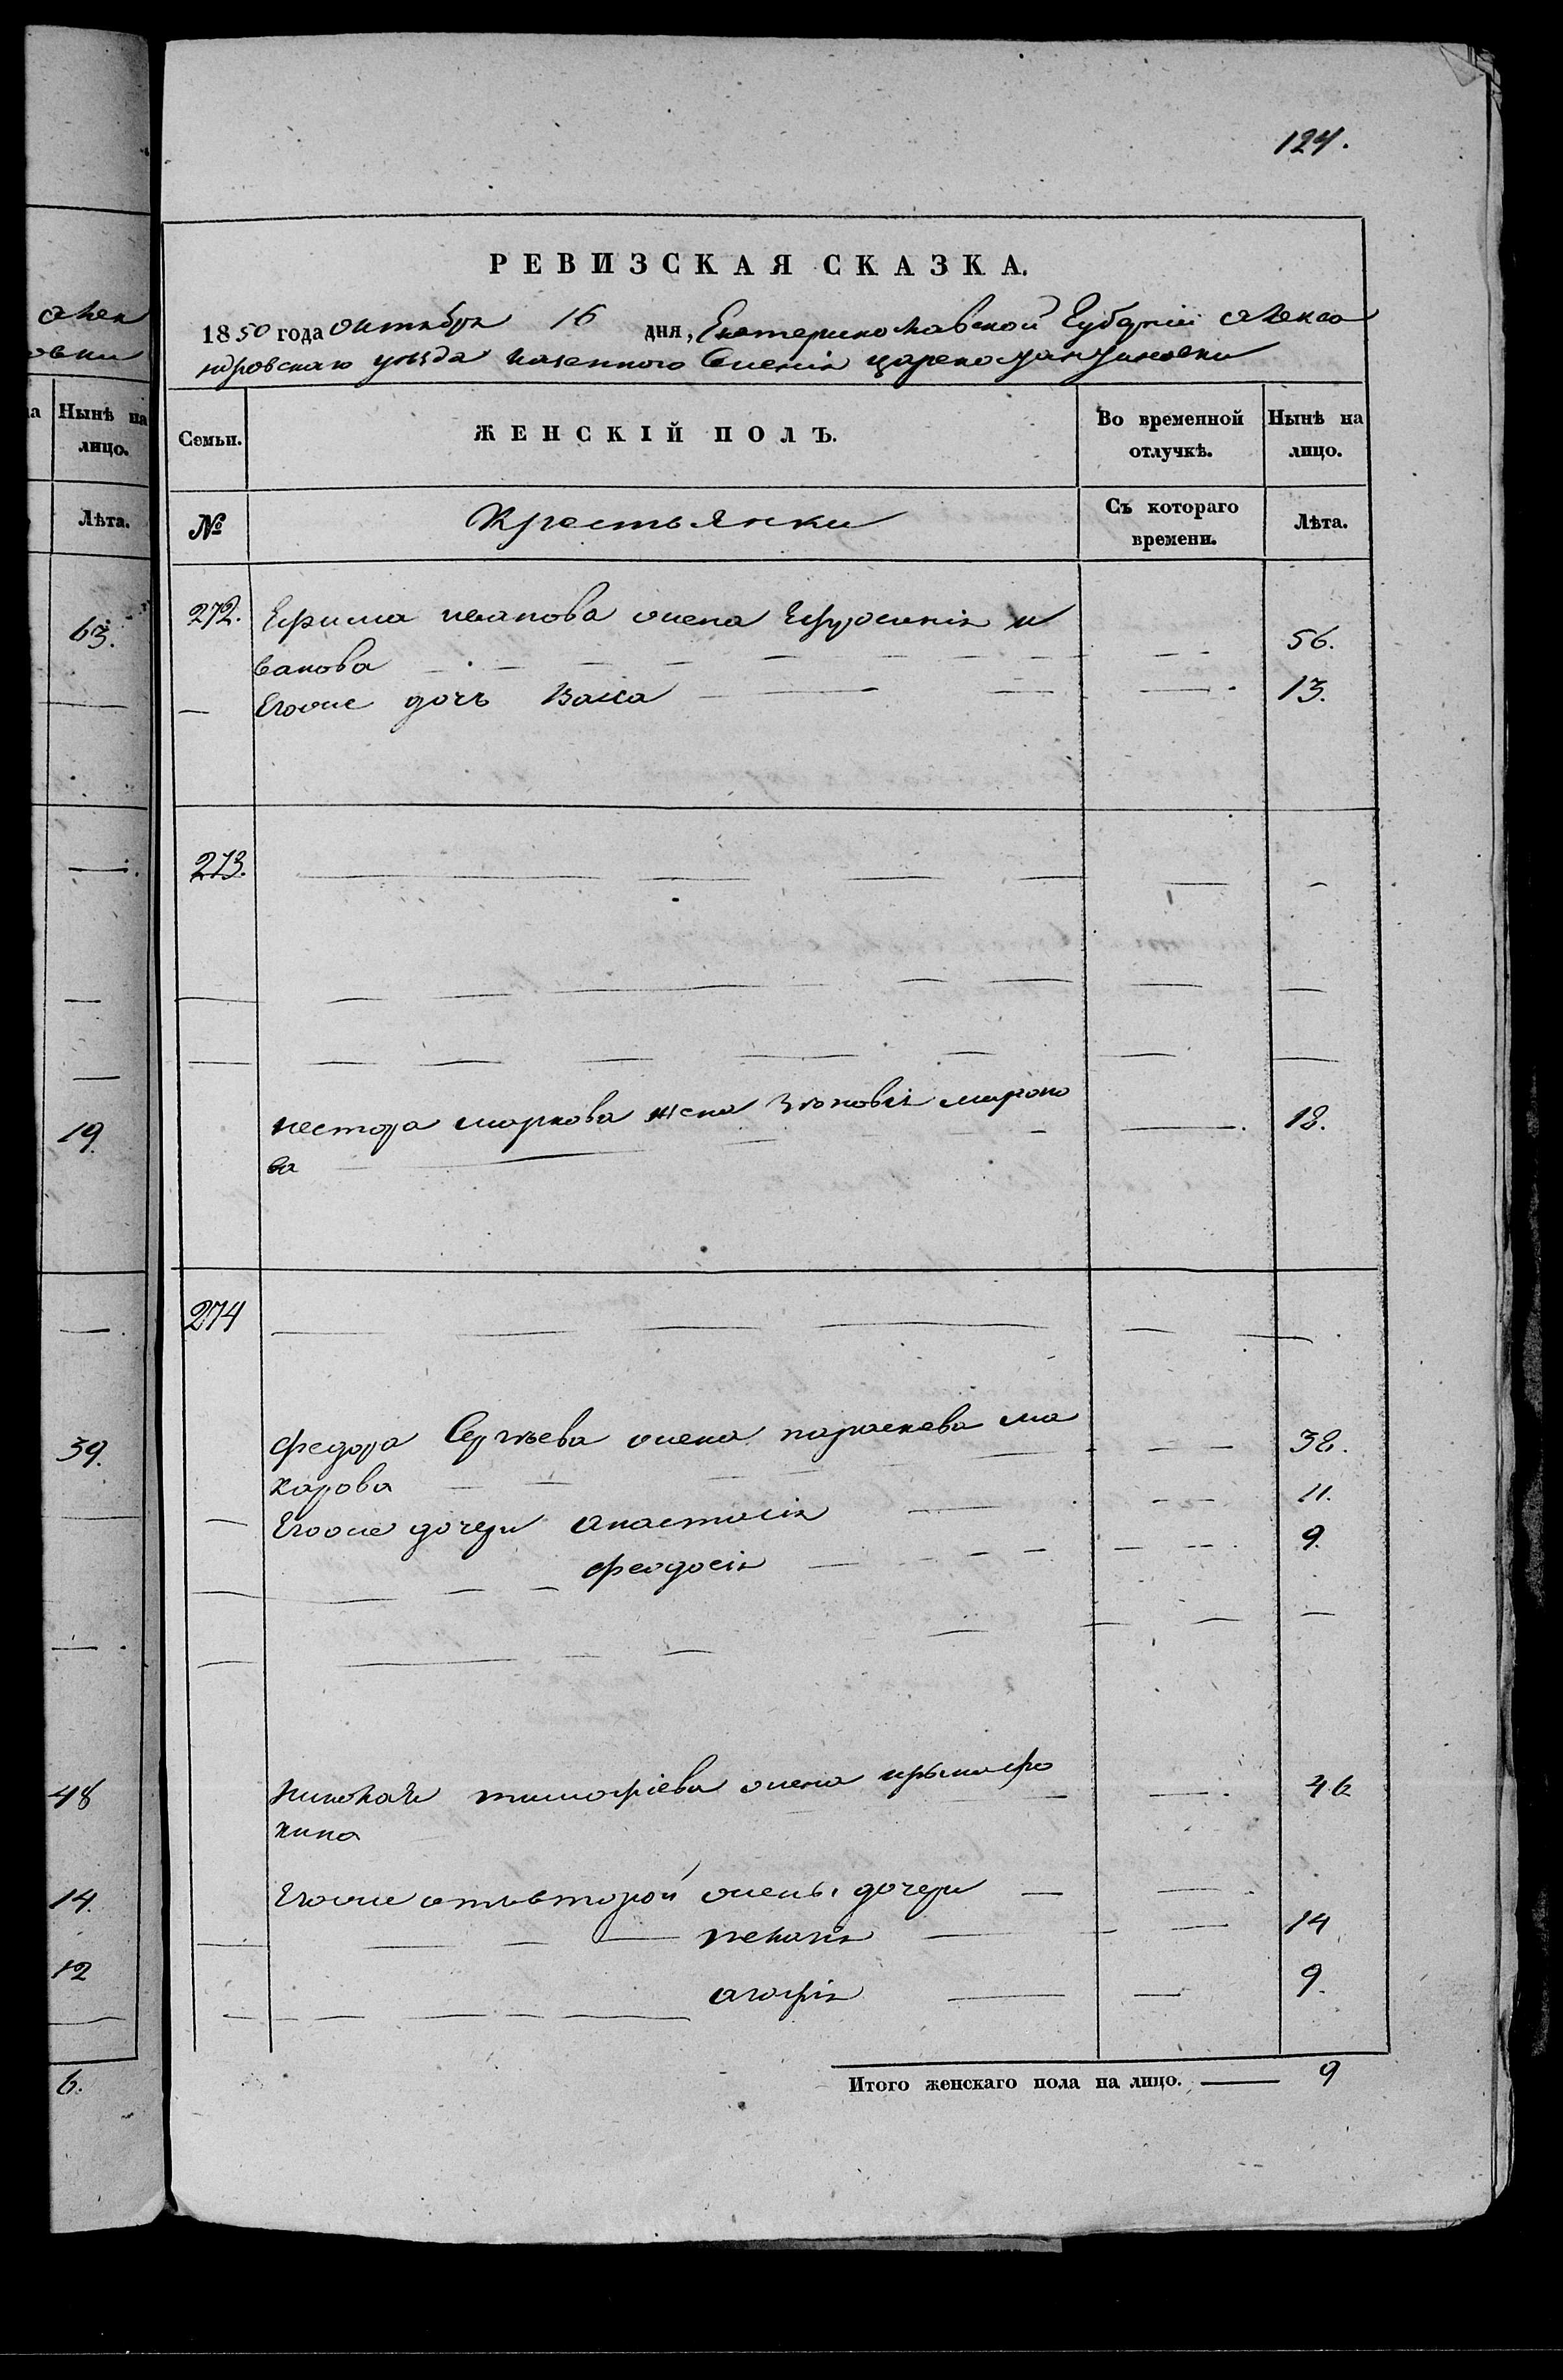 124.
РЕВИЗСКАЯ СКАЗКА.
1850 года октября 16 дня, Екатеринославской Губернии алекса
ндровскаго уѣзда казеннаго Селенія
Семьи. ЖЕНСКІЙ ПОЛЪ. Во временной отлучкѣ. Нынѣ на лицо.
№ Крестьянки Съ котораго времени. Лѣта.
272. Ефима иванова жена Ефросинія и
ванова 56.
Егоже дочь Васса 13.
273.
нестора маркова жена Зѣновія мироно
ва 18.
274
федора Сергѣева жена параскева ма
карова 38.
Егоже дочери анастасія 11.
феодосія 9.
николая тимофіева жена
кина 46
Егоже отъ второй жены дочери
пелагія 14
агафія 9.
Итого женскаго пола на лицо. 9
алек
овки
Нынѣ на
лицо.
Лѣта.
63.
19.
39.
48
14.
12
6.